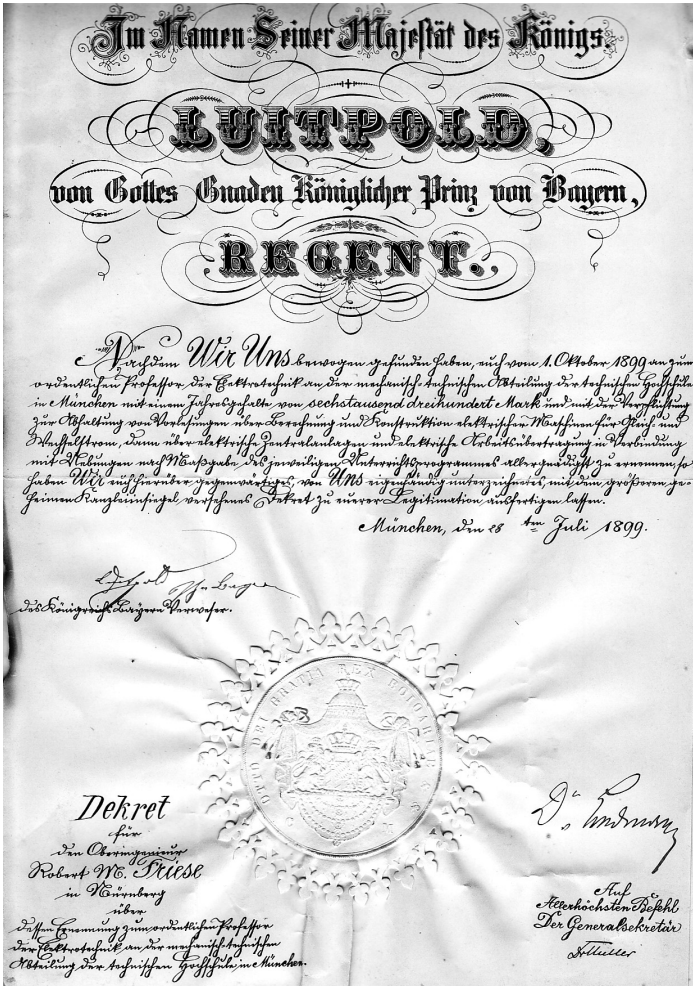 Im Namen Seiner Majestät des Königs.
LUITPOLD,
von Gottes Gnaden Königlicher Prinz von Bayern,
REGENT.
Nachdem Wir Uns bewogen gefunden haben, euch vom 1. Oktober 1899 an zum
ordentlichen Professor der Elektrotechnik an der mechanisch-technischen Abteilung der technischen Hochschule
in München mit einem Jahresgehalte von sechstausend dreihundert Mark und mit der Verpflichtung
zur Abhaltung von Vorlesungen über Berechnung und Konstruktion elektrischer Maschinen für Gleich- und
Wechselstrom, dann über elektrische Zentralanlagen und elektrische Arbeitsübertragung in Verbindung
mit Uebungen nach Maßgabe des jeweiligen Unterrichtsprogrammes allergnädigst zu ernennen, so
haben Wir euch hierüber gegenwärtiges, von Uns eigenhändig unterzeichnetes, mit dem größeren ge-
heimen Kanzleiinsiegel versehenes Dekret zu eurer Legitimation ausfertigen lassen.
München, den 28 ten Juli 1899.
Luitpold Prz. v. Bayern
des Königreichs Bayern Verweser.
OTTO DEI GRATIA REX BOIOARIAE
Dekret
für
den Oberingenieur
Robert M. Friese
in Nürnberg
über
dessen Ernennung zum ordentlichen Professor
der Elektrotechnik an der mechanisch-technischen
Abteilung der technischen Hochschule in München.
Dr.
Auf
Allerhöchsten Befehl
Der Generalsekretär